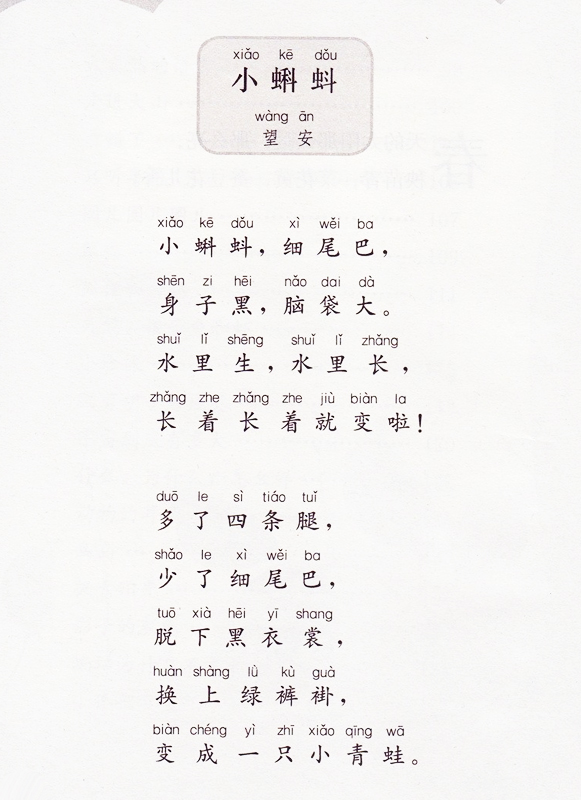 xiǎo kē dǒu
小蝌蚪
wàng ān
望安
xiǎo kē dǒu xì wěi ba
小蝌蚪，细尾巴，
shēn zi hēi nǎo dai dà
身子黑，脑袋大。
shuǐ lǐ shēng shuǐ lǐ zhǎng
水里生，水里长，
zhǎng zhe zhǎng zhe jiù biàn la
长着长着就变啦！
duō le sì tiáo tuǐ
多了四条腿，
shǎo le xì wěi ba
少了细尾巴，
tuō xià hēi yī shang
脱下黑衣裳，
huàn shàng lǜ kù guà
换上绿裤褂，
biàn chéng yì zhī xiǎo qīng wā
变成一只小青蛙。